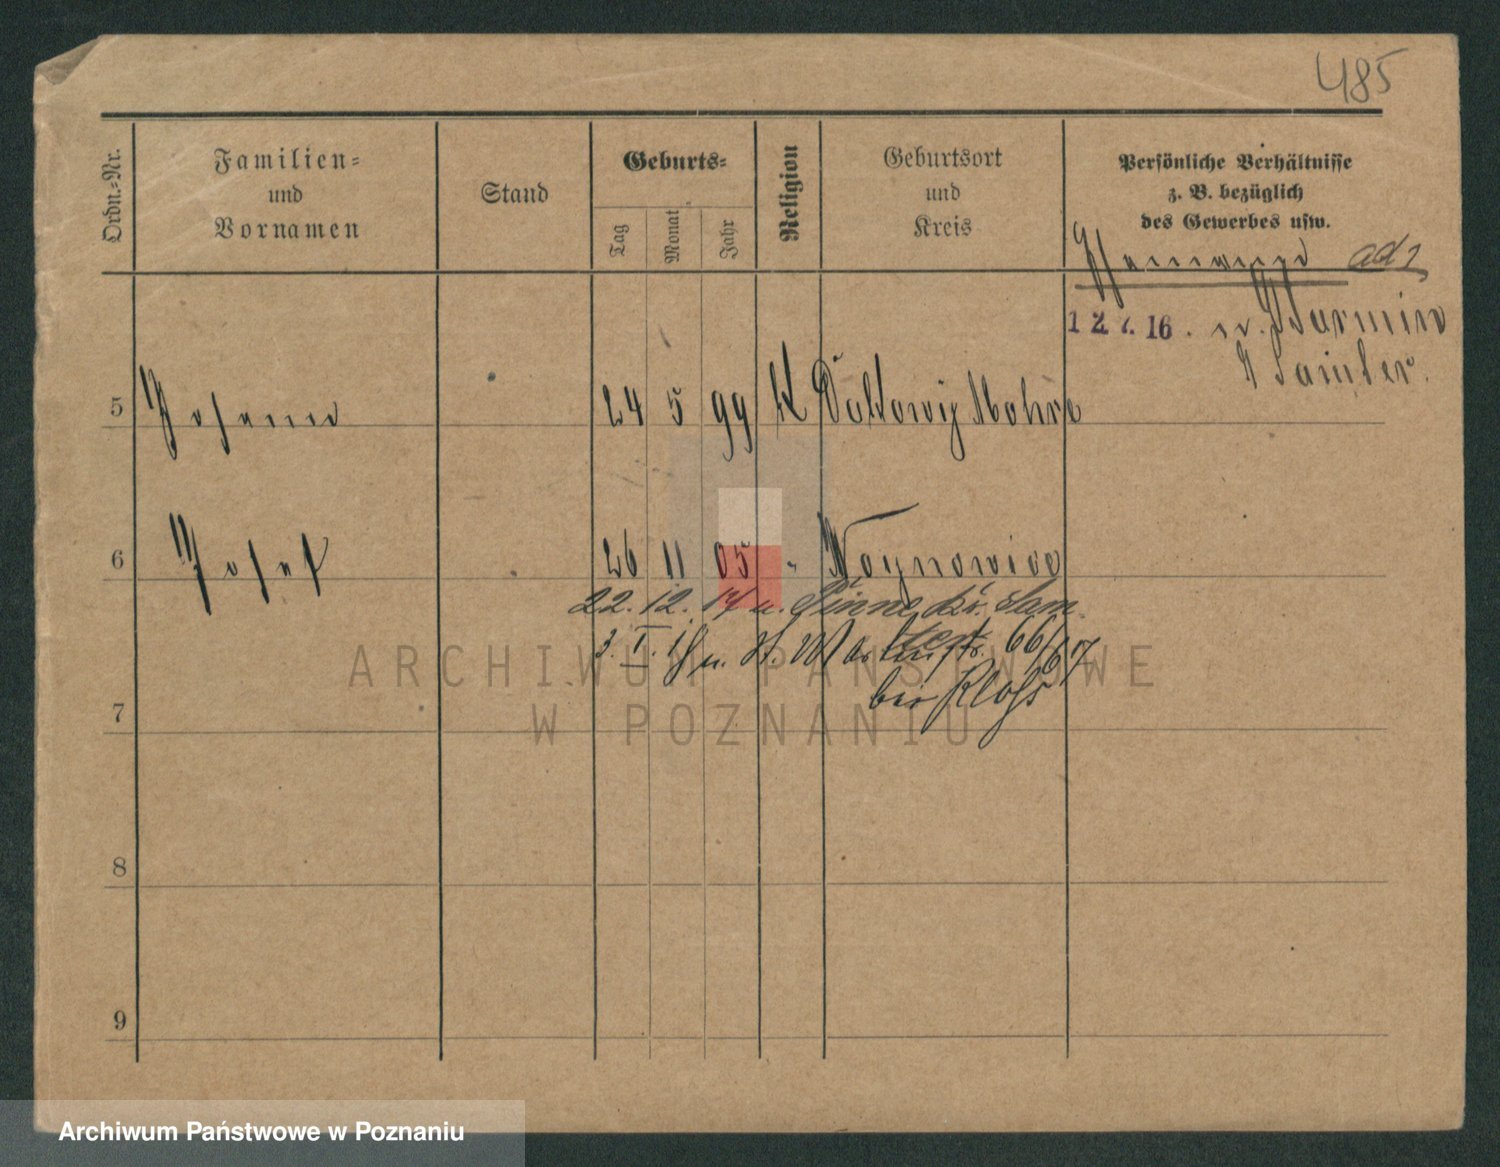 485
Ordn.-Nr.
Familien-
und
Vornamen
Stand
Geburts-
Tag
Monat
Jahr
Religion
Geburtsort
und
Kreis
Persönliche Verhältnisse
z. B. bezüglich
des Gewerbes usw.
ad 1
12 7. 16. n.
Samter.
5 24 5 99 K
6 Josef 26 11 05 " Woynowice
22. 12. 17 n. Pinne Kr. Sam
ter
3. I. 18 n. 66/67
bei
7
8
9
ARCHIWUM PAŃSTWOWE
W POZNANIU
Archiwum Państwowe w Poznaniu